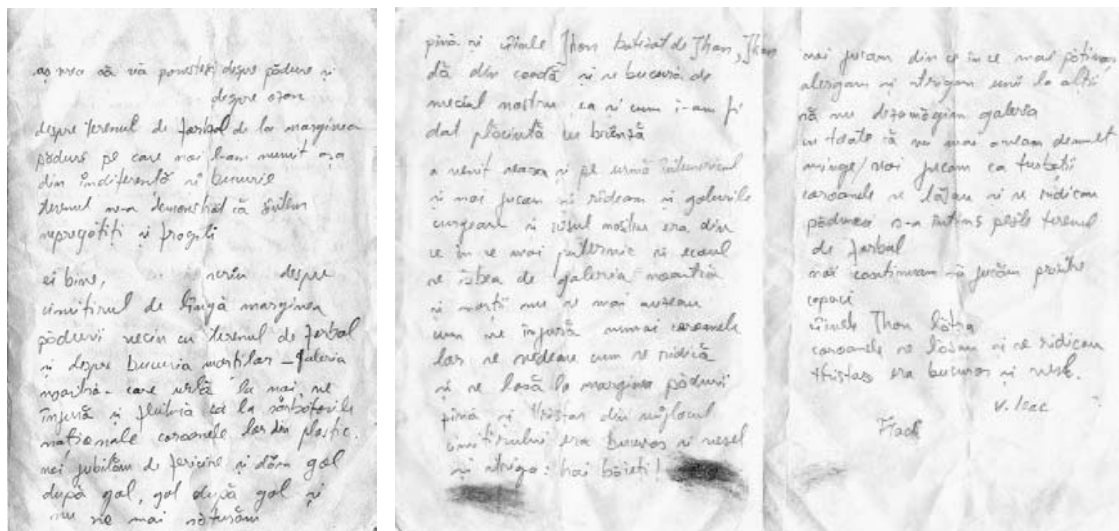 aș vrea să vă povestesc despre pădure și
despre ozon
despre terenul de fotbal de la marginea
pădurii pe care noi l-am numit așa
din indiferență și bucurie
terenul ne-a demonstrat că sîntem
nepregătiți și fragili
ei bine, scriu despre
cimitirul de lîngă marginea
pădurii vecin cu terenul de fotbal
și despre bucuria morților – galeria
noastră – care urlă la noi, ne
înjură și flutură ca la sărbătorile
naționale coroanele lor din plastic.
noi jubilăm de fericire și dăm gol
după gol, gol după gol și
nu ne mai săturăm
pînă și cîinele Jhon botezat de Jhon, Jhon
dă din coadă și se bucură de
meciul nostru ca și cum i-am fi
dat plăcintă cu brînză
a venit seara și pe urmă întunericul
și noi jucam și rîdeam și golurile
curgeau și rîsul nostru era din
ce în ce mai puternic și ecoul
se izbea de galeria noastră
și morții nu se mai auzeau
cum ne înjură numai coroanele
lor se vedeau cum se ridică
și se lasă la marginea pădurii
pînă și Hristos din mijlocul
cimitirului era bucuros și vesel
și striga: hai băieți!
noi jucam din ce în ce mai pătimaș
alergam și strigam unii la alții
să nu dezamăgim galeria
cu toate că nu mai aveam demult
minge/noi jucam ca turbații
coroanele se lăsau și se ridicau
pădurea s-a întins peste terenul
de fotbal
noi continuam să jucăm printre
copaci
cîinele Jhon lătra
coroanele se lăsau și se ridicau
Hristos era bucuros și vesel.
V. Leac